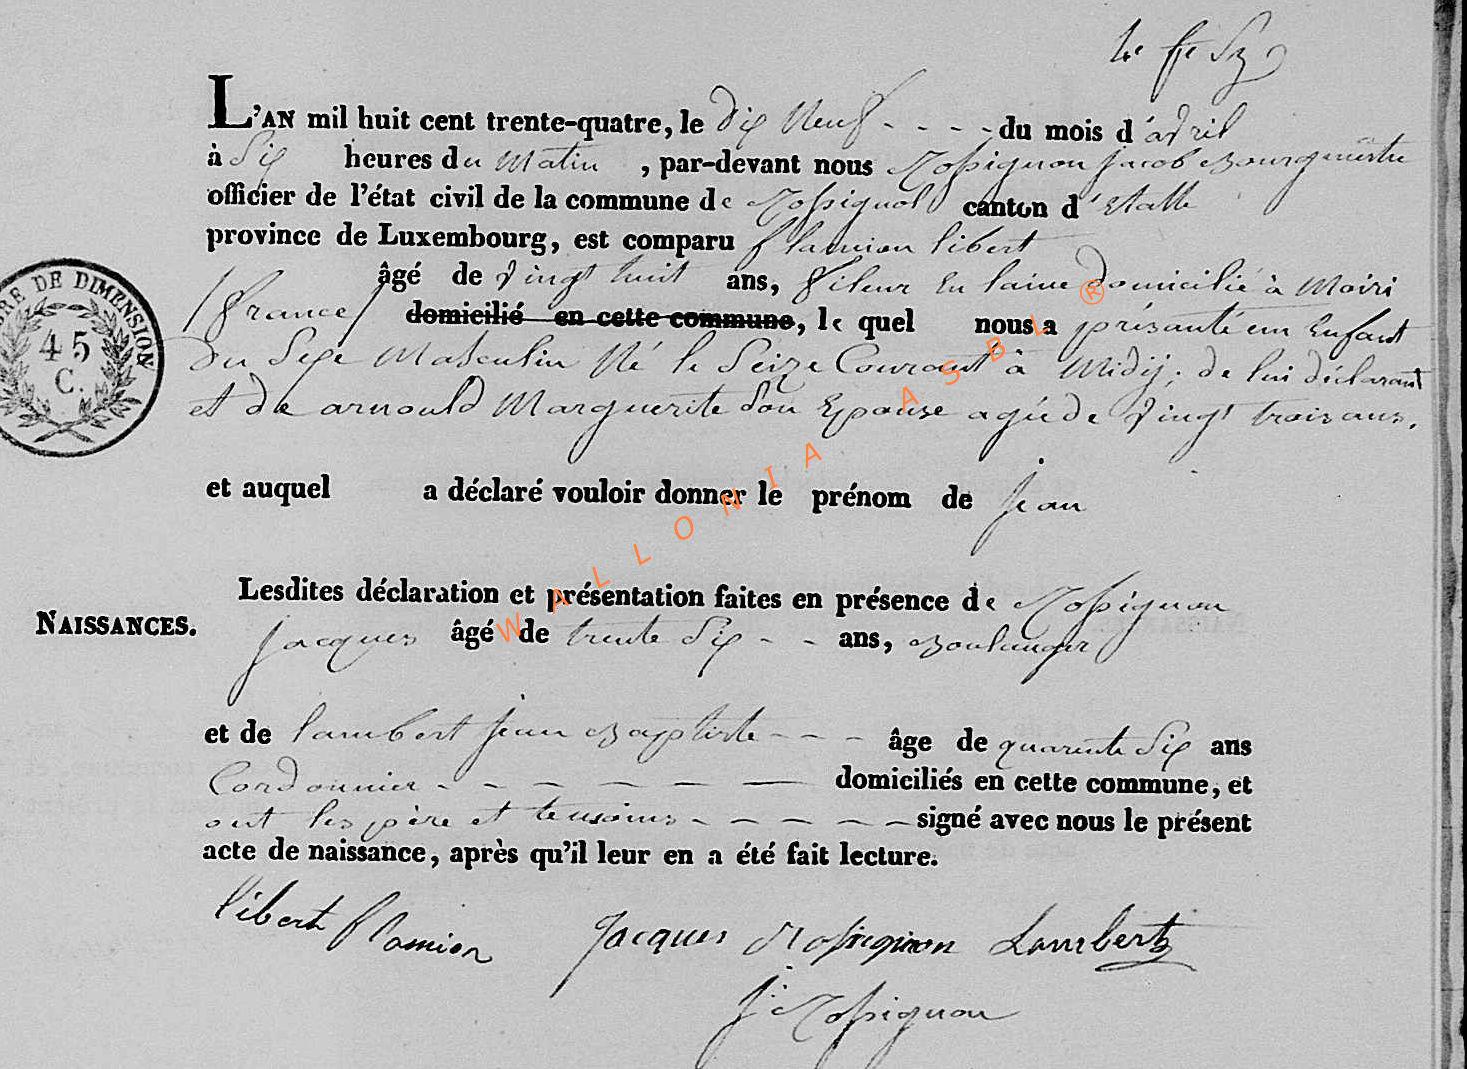 L'AN mil huit cent trente-quatre, le dix neuf - - - - du mois d'avril
à Six heures du matin , par-devant nous Rossignon Jacob Bourgmestre
officier de l'état civil de la commune de Rossignol canton d'Etalle
province de Luxembourg, est comparu flamion libert
âgé de vingt huit ans, fileur en laine domicilié à Moiri
/france/ domicilié en cette commune, le quel nous a présanté un Enfant
du Sexe Masculin Né le Seize Courant à Midij, de lui déclarant
et de arnould Marguerite Son Epouse agée de vingt trois ans.
et auquel a déclaré vouloir donner le prénom de jean
Lesdites déclaration et présentation faites en présence de Rossignon
NAISSANCES.
jacques âgé de trente Six - - ans, Boulanger
et de lambert jean Baptiste - - - âge de quarente Six ans
Cordonnier - - - - - - domiciliés en cette commune, et
ont les père et temoins - - - - - signé avec nous le présent
acte de naissance, après qu'il leur en a été fait lecture.
libert flamion Jacques Rossignon Lambert
j: Rossignon
RE DE DIMENSION
45
C.
WALLONIA ASBL ®